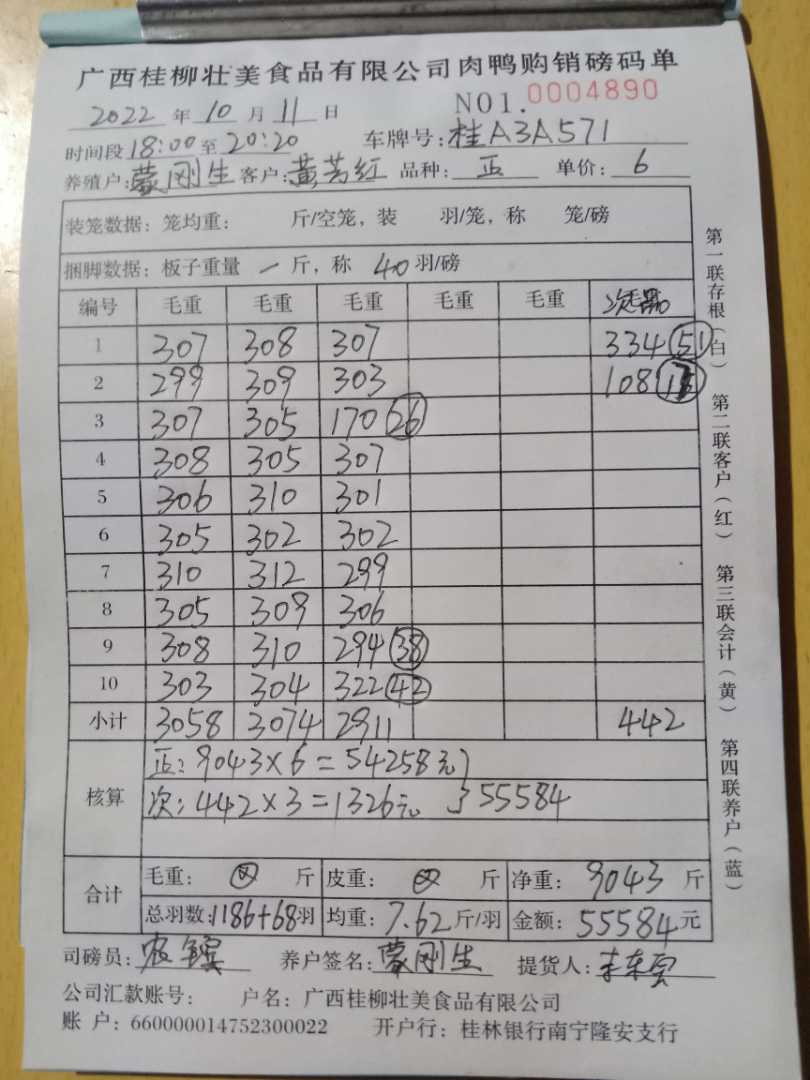 广西桂柳壮美食品有限公司肉鸭购销磅码单
2022 年 10 月 11 日 NO1. 0004890
时间段 18:00 至 20:20 车牌号: 桂A3A571
养殖户: 蒙刚生 客户: 黄芳红 品种: 正 单价: 6
装笼数据: 笼均重: 斤/空笼, 装 羽/笼, 称 笼/磅
捆脚数据: 板子重量 一 斤, 称 40 羽/磅
编号 毛重 毛重 毛重 毛重 毛重
1 307 308 307 334 (51)
2 299 309 303 108
3 307 305 170 (26)
4 308 305 307
5 306 310 301
6 305 302 302
7 310 312 299
8 305 309 306
9 308 310 294 (38)
10 303 304 322 (42)
小计 3058 3074 2911 442
核算 正: 9043×6=54258元
次: 442×3=1326元 } 55584
合计 毛重: 斤 皮重: 斤 净重: 9043 斤
总羽数: 1186+68 羽 均重: 7.62 斤/羽 金额: 55584 元
司磅员: 养户签名: 蒙刚生 提货人:
公司汇款账号: 户名: 广西桂柳壮美食品有限公司
账 户: 660000014752300022 开户行: 桂林银行南宁隆安支行
第一联存根(白) 第二联客户(红) 第三联会计(黄) 第四联养户(蓝)